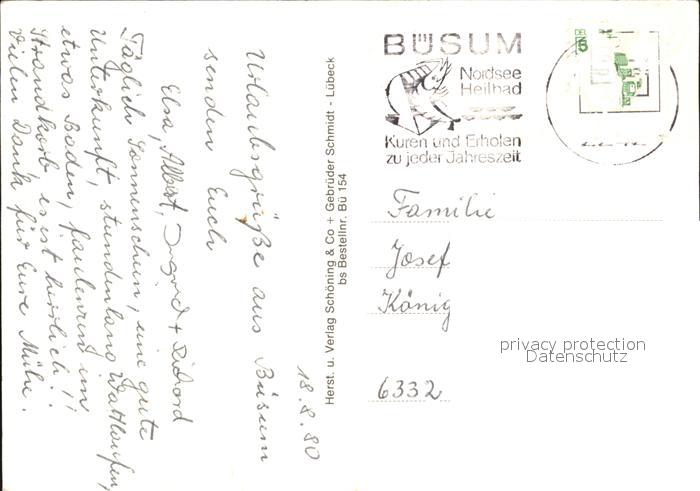 18.8.80
Urlaubsgrüße aus Büsum
senden Euch
Elsa, Albert, Ingrid + Richard
Täglich Sonnenschein, eine gute
Unterkunft, stundenlang Wattlaufen,
etwas Baden, faulenzend im
Strandkorb es ist herrlich!!
Vielen Dank für Eure Mühe.
Herst. u. Verlag Schöning & Co + Gebrüder Schmidt - Lübeck
bs Bestellnr. Bü 154
BÜSUM
Nordsee
Heilbad
Kuren und Erholen
zu jeder Jahreszeit
Familie
Josef
König
privacy protection
Datenschutz
6332